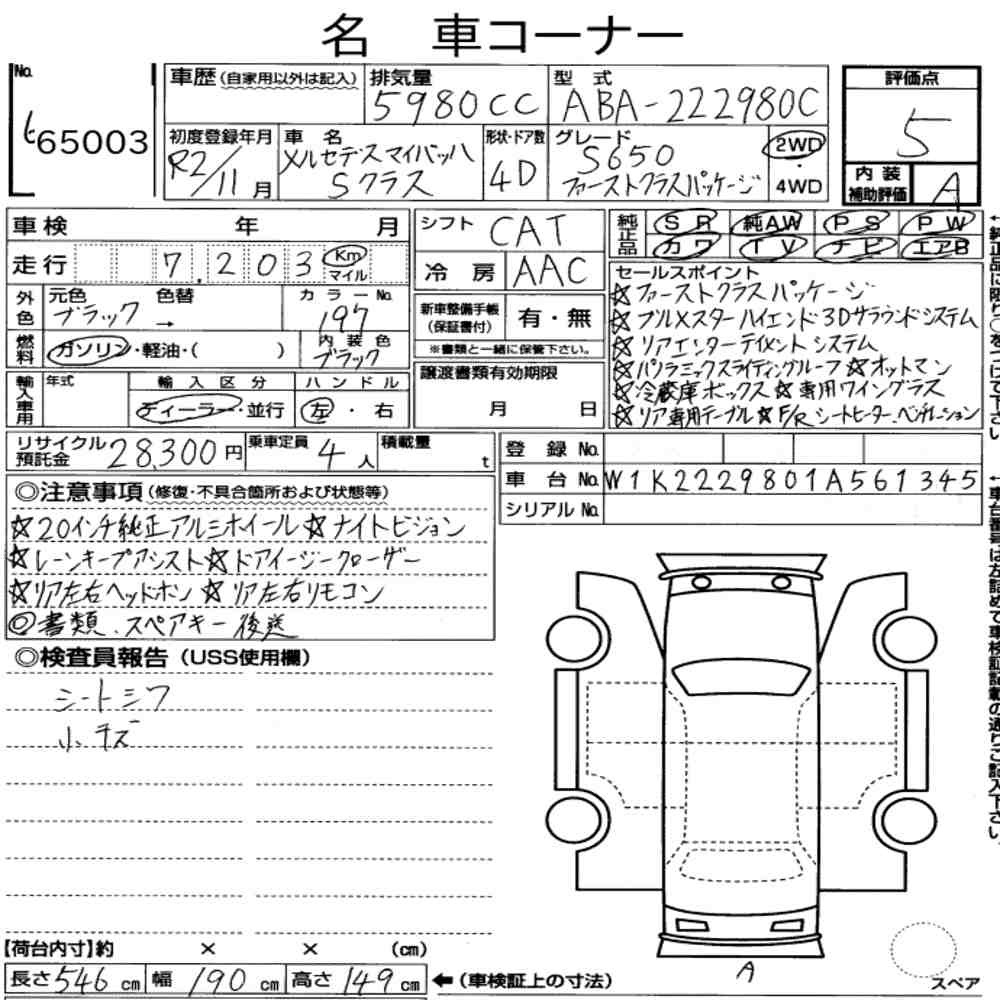 名 車コーナー
No.
t65003
車歴(自家用以外は記入)
排気量
5980CC
型 式
ABA-222980C
評価点
5
初度登録年月
R2/11月
車 名
メルセデスマイバッハ
Sクラス
形状・ドア数
4D
グレード
S650
ファーストクラスパッケージ
2WD
・
4WD
内 装
補助評価
A
車検 年 月
シフト
CAT
純正品
SR 純AW PS PW
カワ TV ナビ エアB
走行
7,203
Km
マイル
冷 房
AAC
セールスポイント
☆ファーストクラスパッケージ
☆ブルメスターハイエンド3Dサラウンドシステム
☆リアエンターテイメントシステム
☆パノラミックスライディングルーフ☆オットマン
☆冷蔵庫ボックス☆専用ワイングラス
☆リア専用テーブル☆F/Rシートヒーター、ベンチレーション
外色
元色 色替
ブラック →
カラーNo.
197
新車整備手帳
(保証書付)
有・無
※書類と一緒に保管下さい。
燃料
ガソリン・軽油・( )
内 装 色
ブラック
譲渡書類有効期限
月 日
輸入車用
年式
輸 入 区 分
ディーラー・並行
ハ ン ド ル
左・右
リサイクル
預託金
28,300円
乗車定員
4人
積載量
t
登 録 No.
車 台 No.
W1K2229801A561345
シリアルNo.
◎注意事項(修復・不具合箇所および状態等)
☆20インチ純正アルミホイール☆ナイトビジョン
☆レーンキープアシスト☆ドアイージークローザー
☆リア左右ヘッドホン☆リア左右リモコン
◎書類、スペアキー後送
◎検査員報告(USS使用欄)
シートシワ
小キズ
A
スペア
【荷台内寸】約 × × (cm)
長さ546cm 幅190cm 高さ149cm
←(車検証上の寸法)
←純正品に限り○をつけて下さい
←車台番号は左詰めで車検証記載の通りご記入下さい。